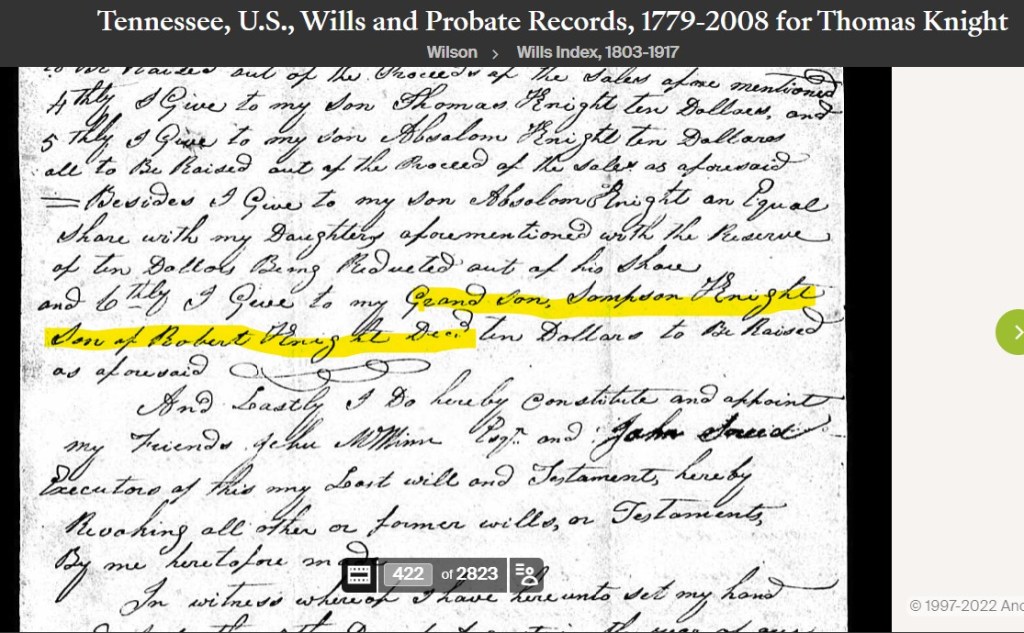 Tennessee, U.S., Wills and Probate Records, 1779-2008 for Thomas Knight
Wilson > Wills Index, 1803-1917
to Be Raised out of the Proceeds of the Sales afore mentioned
4 thly I Give to my Son Thomas Knight ten Dollars, and
5 thly I Give to my son Absalom Knight ten Dollars
all to Be Raised out of the Proceed of the sales as aforesaid
= Besides I Give to my son Absalom Knight an Equal
share with my Daughters aforementioned with the Reserve
of ten Dollars Being Reducted out of his share
and 6 thly I Give to my Grand son, Sampson Knight
Son of Robert Knight Decd ten Dollars to Be Raised
as aforesaid
And Lastly I Do hereby Constitute and appoint
my Friends Esqr. and John
Executors of this my Last will and Testament, hereby
Revoking all other or former wills, or Testaments,
By me heretofore made
In witness whereof I have hereunto set my hand
422 of 2823
© 1997-2022 Anc